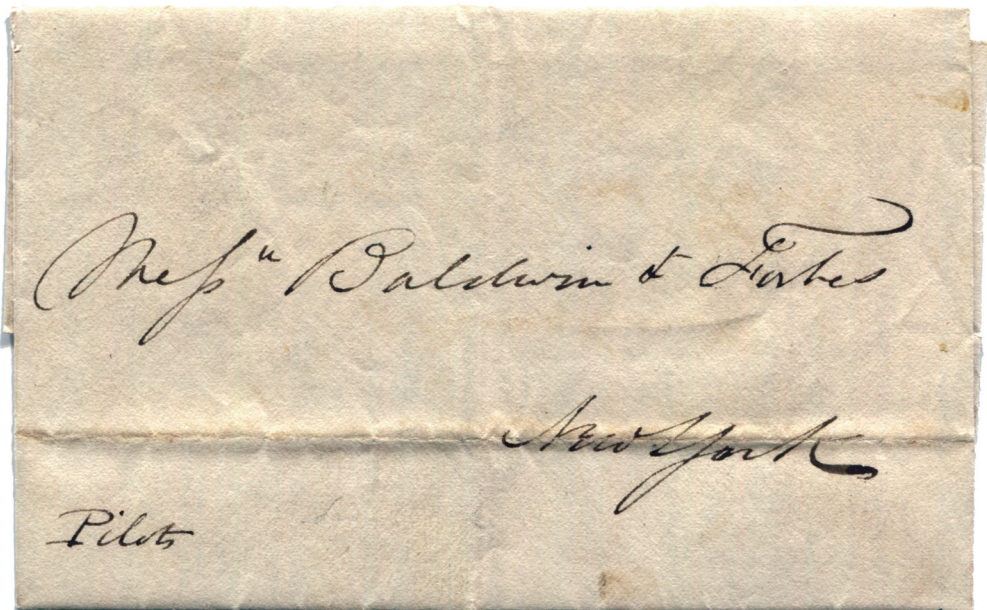 Messrs Baldwin & Forbes
New York
Pilot